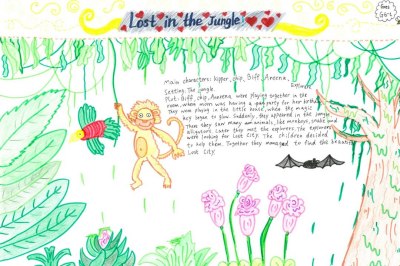 Lost in the Jungle
Main characters: Kipper, Chip, Biff, Aneena, Explorer
Setting: The jungle
Plot: Biff, Chip, Aneena were playing together in the
room, when mom was having a party for her birthday.
They were playing in the little house, when the magic
key began to glow. Suddenly, they appeared in the jungle
Then they saw many animals, like monkeys, snake and
Later they met the explorers. The explorers
were looking for Lost City. The children decided
to help them. Together they managed to find the beautiful
Lost City.